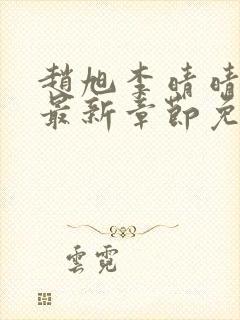 趙旭李晴晴
最新章節免
雲霓